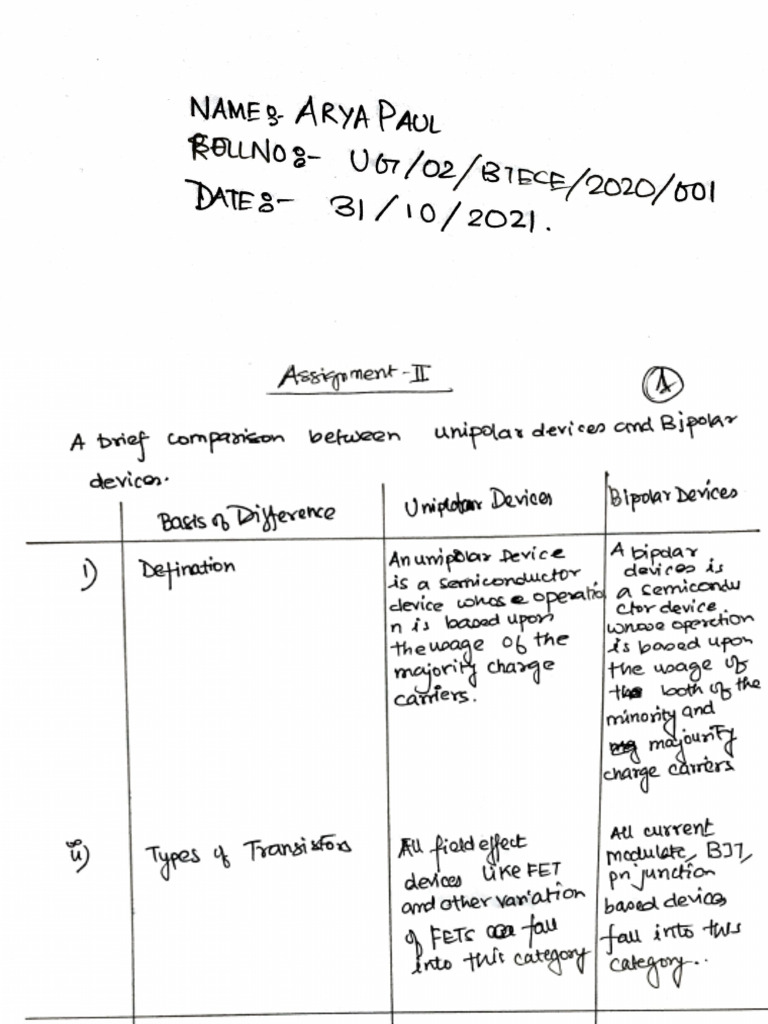 NAME:- ARYA PAUL
ROLLNO:- UG/02/BTECE/2020/001
DATE:- 31/10/2021.
Assignment-II
1
A brief comparison between unipolar devices and Bipolar
devices.
Basis of Difference
Unipolar Devices
Bipolar Devices
i)
Defination
An unipolar Device
is a semiconductor
device whose operatio
n is based upon
the usage of the
majority charge
carriers.
A bipolar
devices is
a semicondu
ctor device
whose operction
is based upon
the usage of
both of the
minority and
majourity
charge carriers
ii)
Types of Transistors
All field effect
devices like FET
and other variation
of FETs fall
into this category
All current
modulate, BJT,
pn junction
based devices
fall into this
category..